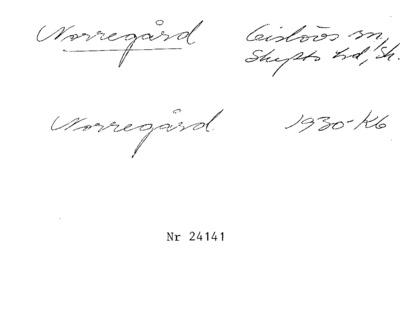 Norregård Gislövs sn,
Skytts hd, Sk.
Norregård 1930-Kb
Nr 24141